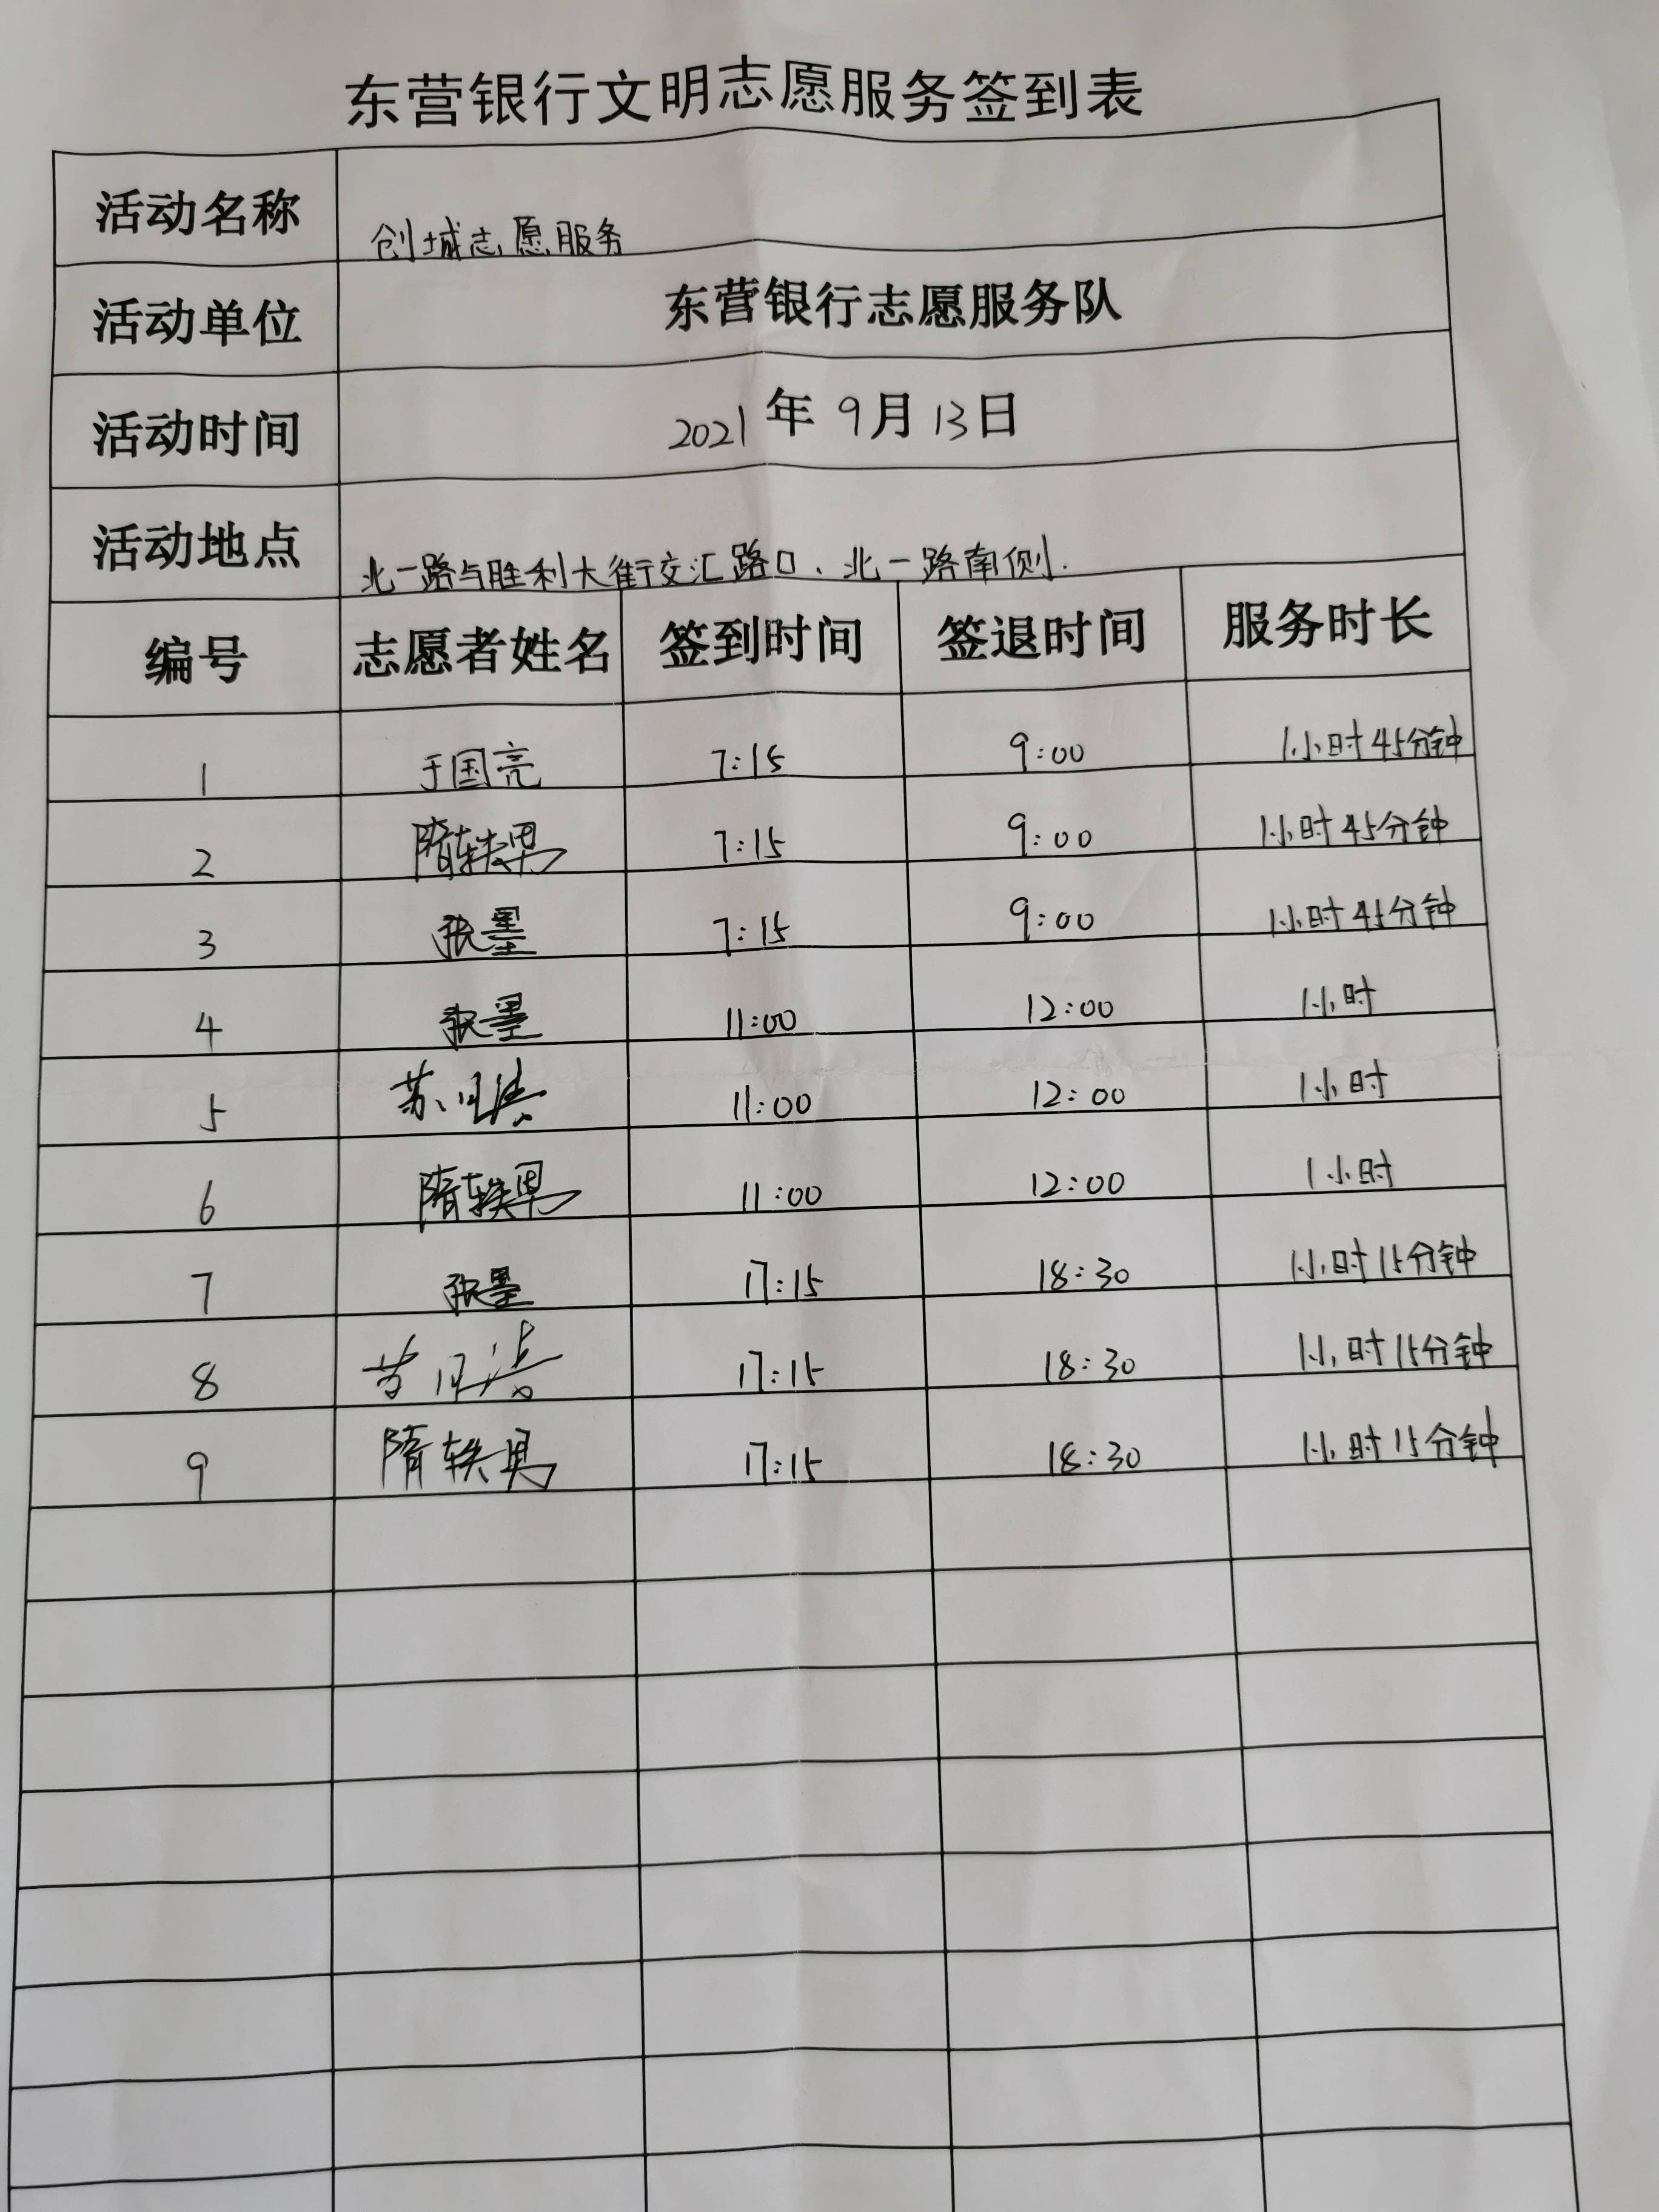 东营银行文明志愿服务签到表
活动名称 创城志愿服务
活动单位 东营银行志愿服务队
活动时间 2021年9月13日
活动地点 北一路与胜利大街交汇路口、北一路南侧.
编号 志愿者姓名 签到时间 签退时间 服务时长
1 于国亮 7:15 9:00 1小时45分钟
2 隋轶男 7:15 9:00 1小时45分钟
3 张墨 7:15 9:00 1小时45分钟
4 张墨 11:00 12:00 1小时
5 苏 11:00 12:00 1小时
6 隋轶男 11:00 12:00 1小时
7 张墨 17:15 18:30 1小时15分钟
8 17:15 18:30 1小时15分钟
9 隋轶男 17:15 18:30 1小时15分钟